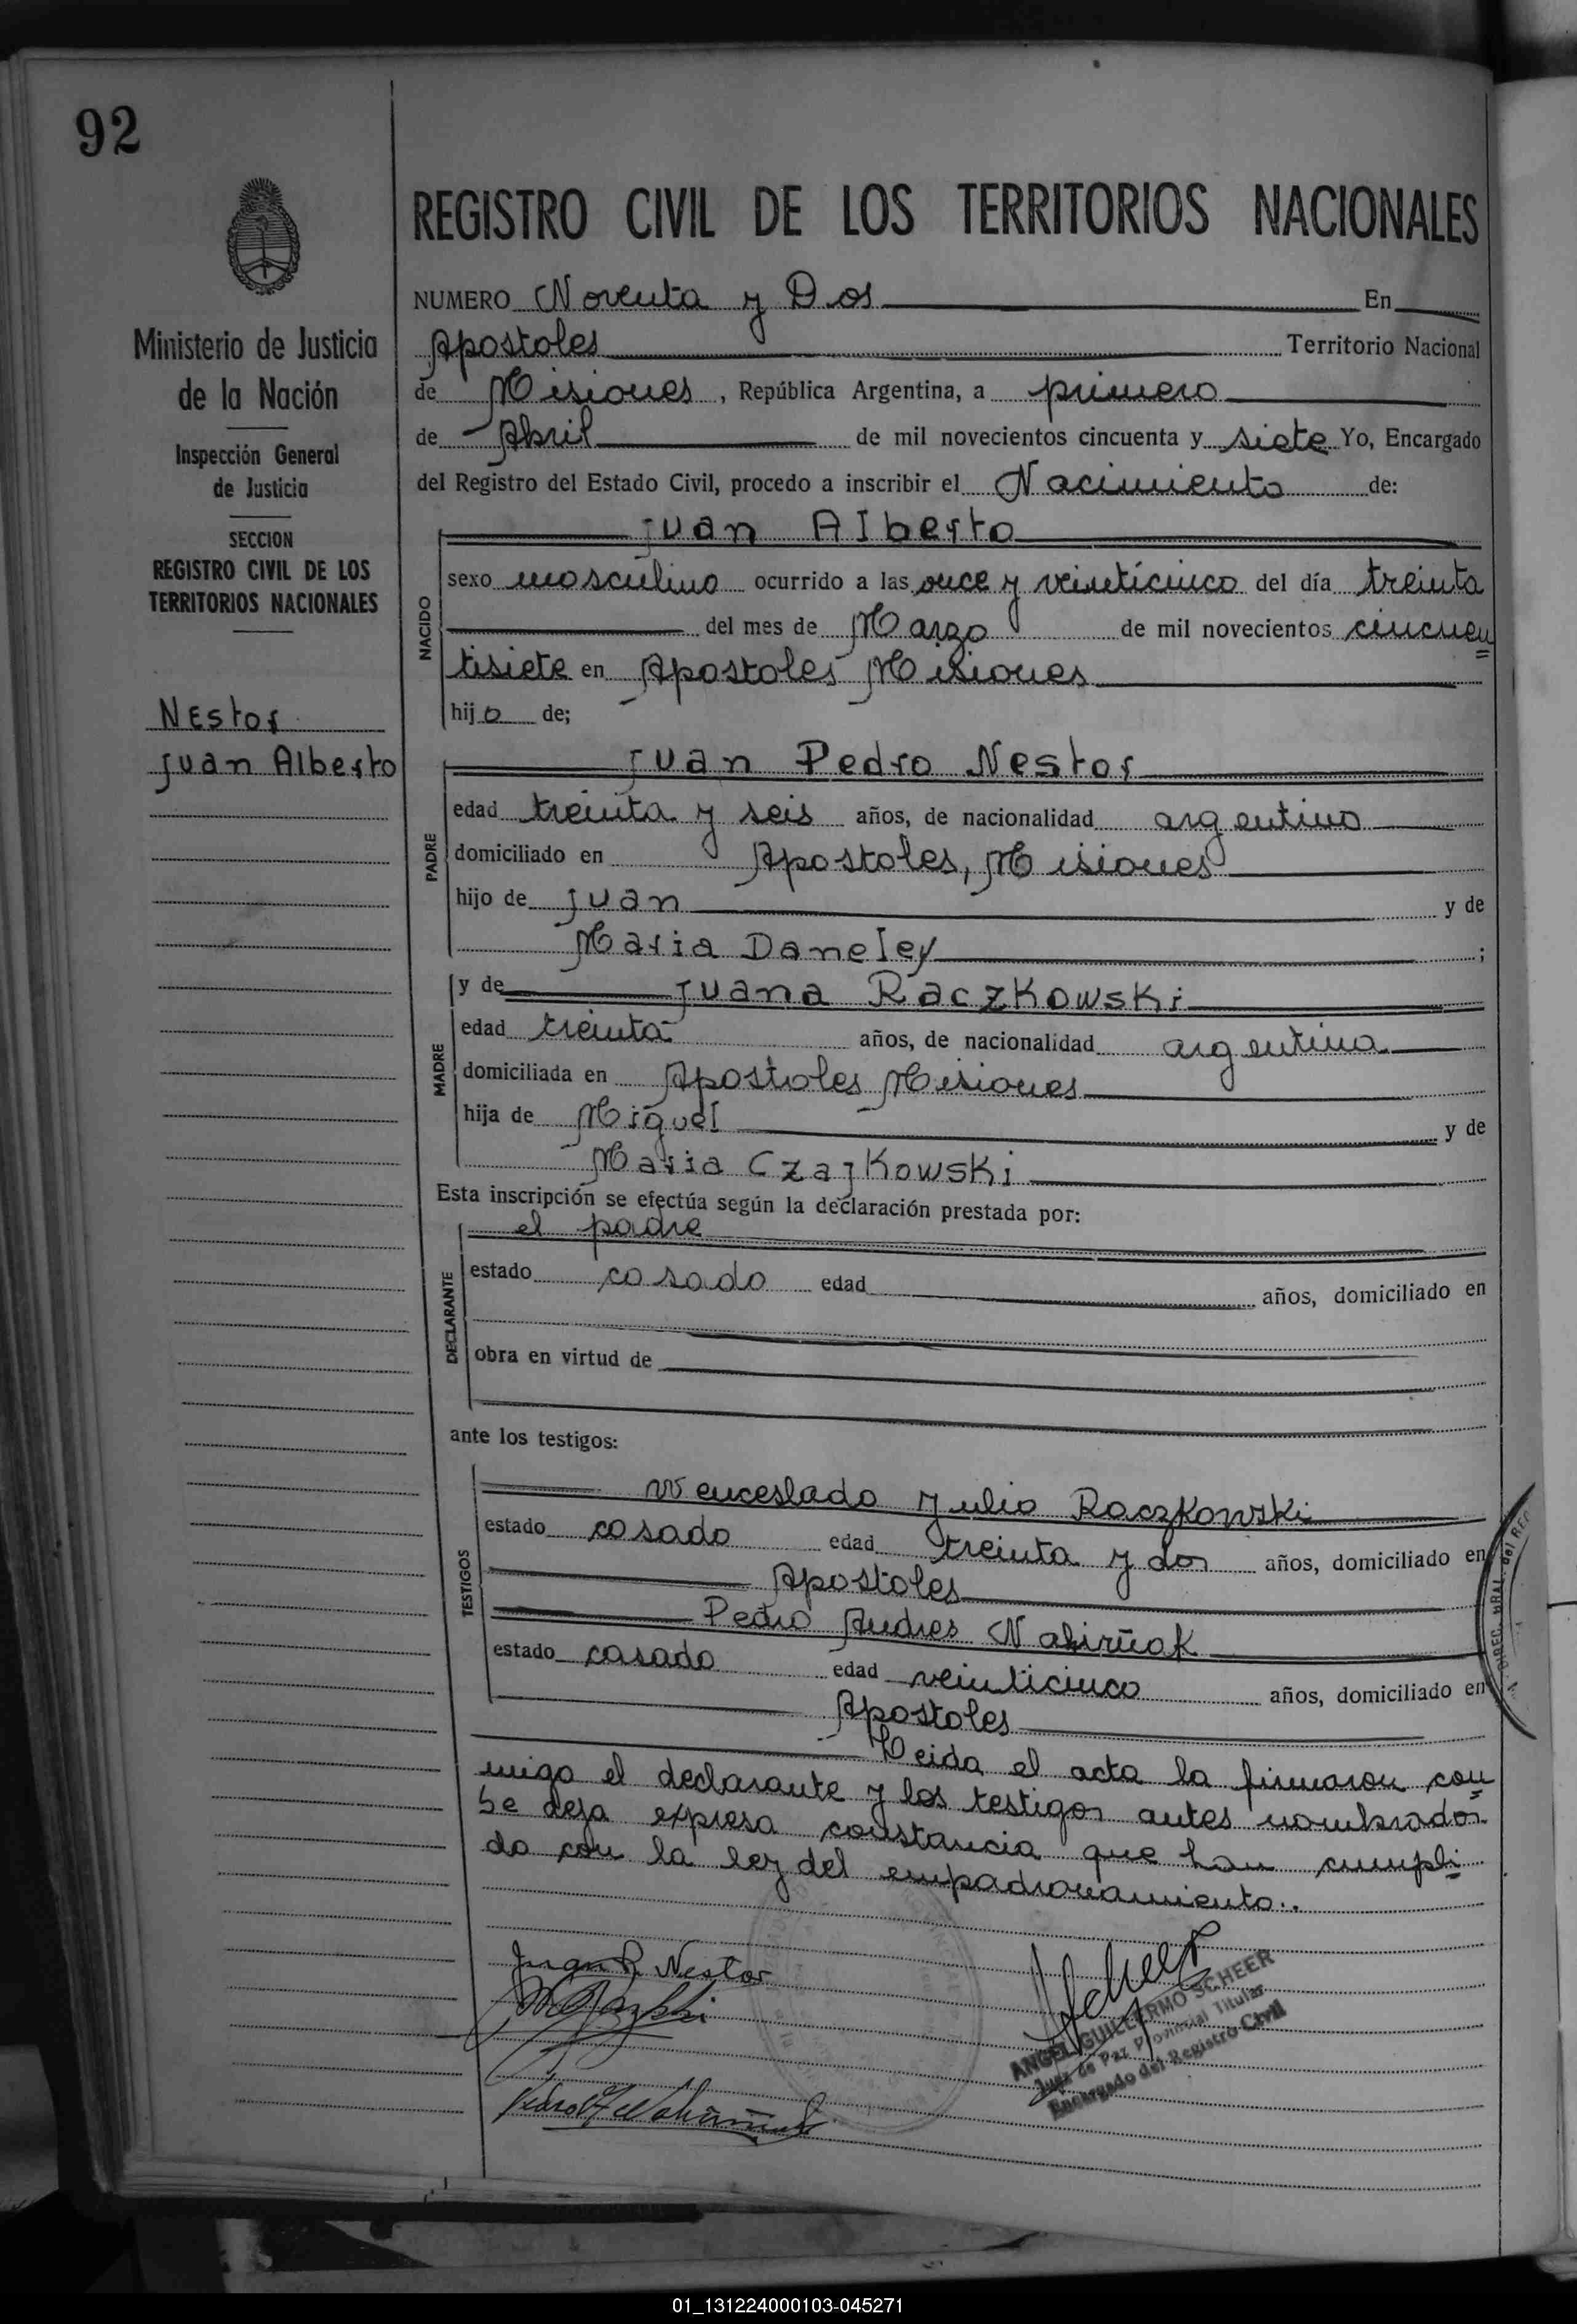 92
REGISTRO CIVIL DE LOS TERRITORIOS NACIONALES
Ministerio de Justicia
de la Nación
Inspección General
de Justicia
SECCION
REGISTRO CIVIL DE LOS
TERRITORIOS NACIONALES
Nestor
Juan Alberto
NUMERO Noventa y Dos En
Apostoles Territorio Nacional
de Misiones, República Argentina, a primero
de Abril de mil novecientos cincuenta y siete Yo, Encargado
del Registro del Estado Civil, procedo a inscribir el Nacimiento de:
NACIDO
Juan Alberto
sexo masculino ocurrido a las once y veinticinco del día treinta
del mes de Marzo de mil novecientos cincuen
tisiete en Apostoles Misiones
hijo de;
PADRE
Juan Pedro Nestor
edad treinta y seis años, de nacionalidad argentino
domiciliado en Apostoles, Misiones
hijo de Juan y de
Maria Daneley ;
MADRE
y de Juana Raczkowski
edad treinta años, de nacionalidad argentina
domiciliada en Apostoles Misiones
hija de Miguel y de
Maria Czajkowski
Esta inscripción se efectúa según la declaración prestada por:
DECLARANTE
el padre
estado casado edad años, domiciliado en
obra en virtud de
ante los testigos:
TESTIGOS
Wenceslado Julio Raczkowski
estado casado edad treinta y dos años, domiciliado en
Apostoles
Pedro Andres Nahirñak
estado casado edad veinticinco años, domiciliado en
Apostoles
Leida el acta la firmaron con
migo el declarante y los testigos antes nombrados
Se deja expresa constancia que han cumpli
do con la ley del empadronamiento..
Juan P. Nestor
ANGEL GUILLERMO SCHEER
Juez de Paz Provincial Titular
Encargado del Registro Civil
01_131224000103-045271